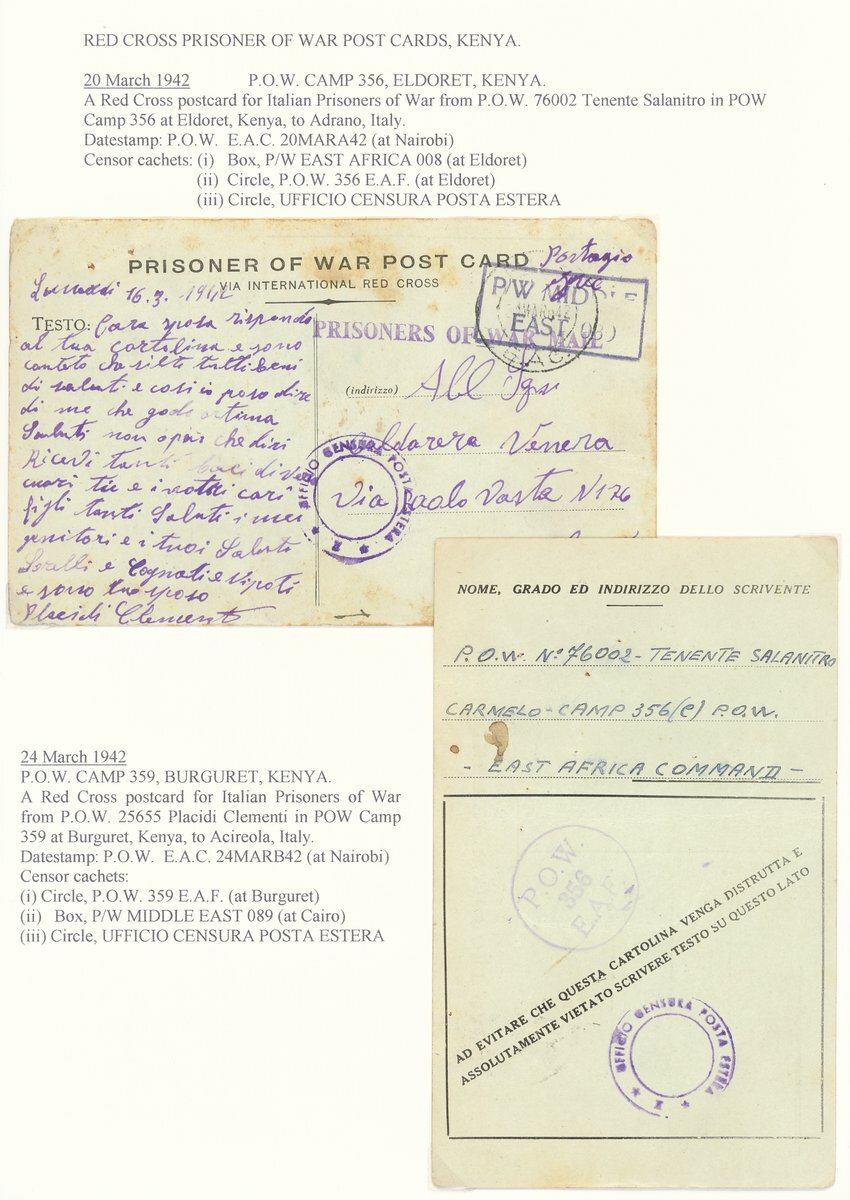 RED CROSS PRISONER OF WAR POST CARDS, KENYA.
20 March 1942 P.O.W. CAMP 356, ELDORET, KENYA.
A Red Cross postcard for Italian Prisoners of War from P.O.W. 76002 Tenente Salanitro in POW
Camp 356 at Eldoret, Kenya, to Adrano, Italy.
Datestamp: P.O.W. E.A.C. 20MARA42 (at Nairobi)
Censor cachets: (i) Box, P/W EAST AFRICA 008 (at Eldoret)
(ii) Circle, P.O.W. 356 E.A.F. (at Eldoret)
(iii) Circle, UFFICIO CENSURA POSTA ESTERA
PRISONER OF WAR POST CARD
VIA INTERNATIONAL RED CROSS
Portagio
P/W MIDDLE
EAST
E.A.C.
PRISONERS OF WAR MAIL
16.3.1942
TESTO: Cara sposa rispondo
al tua cartolina e sono
di saluti e cosi io poso dire
di me che godo ottima
Saluti non
Ricevi tanti baci
cuori tu e i nostri cari
figli tanti Saluti i miei
genitori e i tuoi Saluto
Sorelli e Cognati e Nipoti
e sono tuo sposo
Placidi Clementi
(indirizzo)
Venera
Via Paolo Vasta N 176
UFFICIO CENSURA POSTA ESTERA
NOME, GRADO ED INDIRIZZO DELLO SCRIVENTE
P.O.W. N° 76002 - TENENTE SALANITRO
CARMELO - CAMP 356/(C) P.O.W.
- EAST AFRICA COMMAND -
P.O.W.
356
E.A.F.
AD EVITARE CHE QUESTA CARTOLINA VENGA DISTRUTTA E
ASSOLUTAMENTE VIETATO SCRIVERE TESTO SU QUESTO LATO
UFFICIO CENSURA POSTA ESTERA
24 March 1942
P.O.W. CAMP 359, BURGURET, KENYA.
A Red Cross postcard for Italian Prisoners of War
from P.O.W. 25655 Placidi Clementi in POW Camp
359 at Burguret, Kenya, to Acireola, Italy.
Datestamp: P.O.W. E.A.C. 24MARB42 (at Nairobi)
Censor cachets:
(i) Circle, P.O.W. 359 E.A.F. (at Burguret)
(ii) Box, P/W MIDDLE EAST 089 (at Cairo)
(iii) Circle, UFFICIO CENSURA POSTA ESTERA